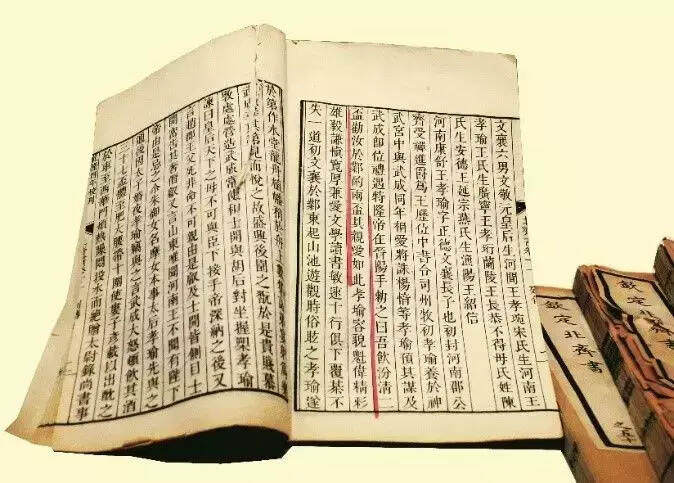 文襄六男文敬元皇后生河間王孝琬宋氏生河南王
孝瑜王氏生廣寧王孝珩蘭陵王長恭不得母氏姓陳
氏生安德王延宗燕氏生漁陽王紹信
河南康舒王孝瑜字正德文襄長子也初封河南郡公
齊受禪進爵為王歷位中書令司州牧初孝瑜養於神
武宮中與武成同年相愛將誅楊愔等孝瑜預其謀及
武成即位禮遇特隆帝在晉陽手勅之曰吾飲汾清二
盃勸汝於鄴酌兩盃其親愛如此孝瑜容貌魁偉精彩
雄毅謙慎寬厚兼愛文學讀書敏速十行俱下覆棊不
失一道初文襄於鄴東起山池遊觀時俗眩之孝瑜遂
於第作水堂龍舟植幡矟於舟上
其第見而悅之故盛興後園之翫於是貴賤慕
斅處處營造武成常使和士開與胡后對坐握槊孝瑜
諫曰皇后天下之母不可與臣下接手帝深納之後又
言趙郡王父死非命不可親由是叡及士開皆側目士
開密告其奢僭叡又言山東唯聞河南王不聞有陛下
帝由是忌之尒朱御女名摩女本事太后孝瑜先與之
通後因太子婚夜孝瑜竊與之言武成大怒頓飲其酒
三十七盃體至肥大腰帶十圍使婁子彥載以出酖之
於車至西華門煩熱躁悶投水而絕贈太尉錄尚書事
欽定北齊書
欽定北齊書